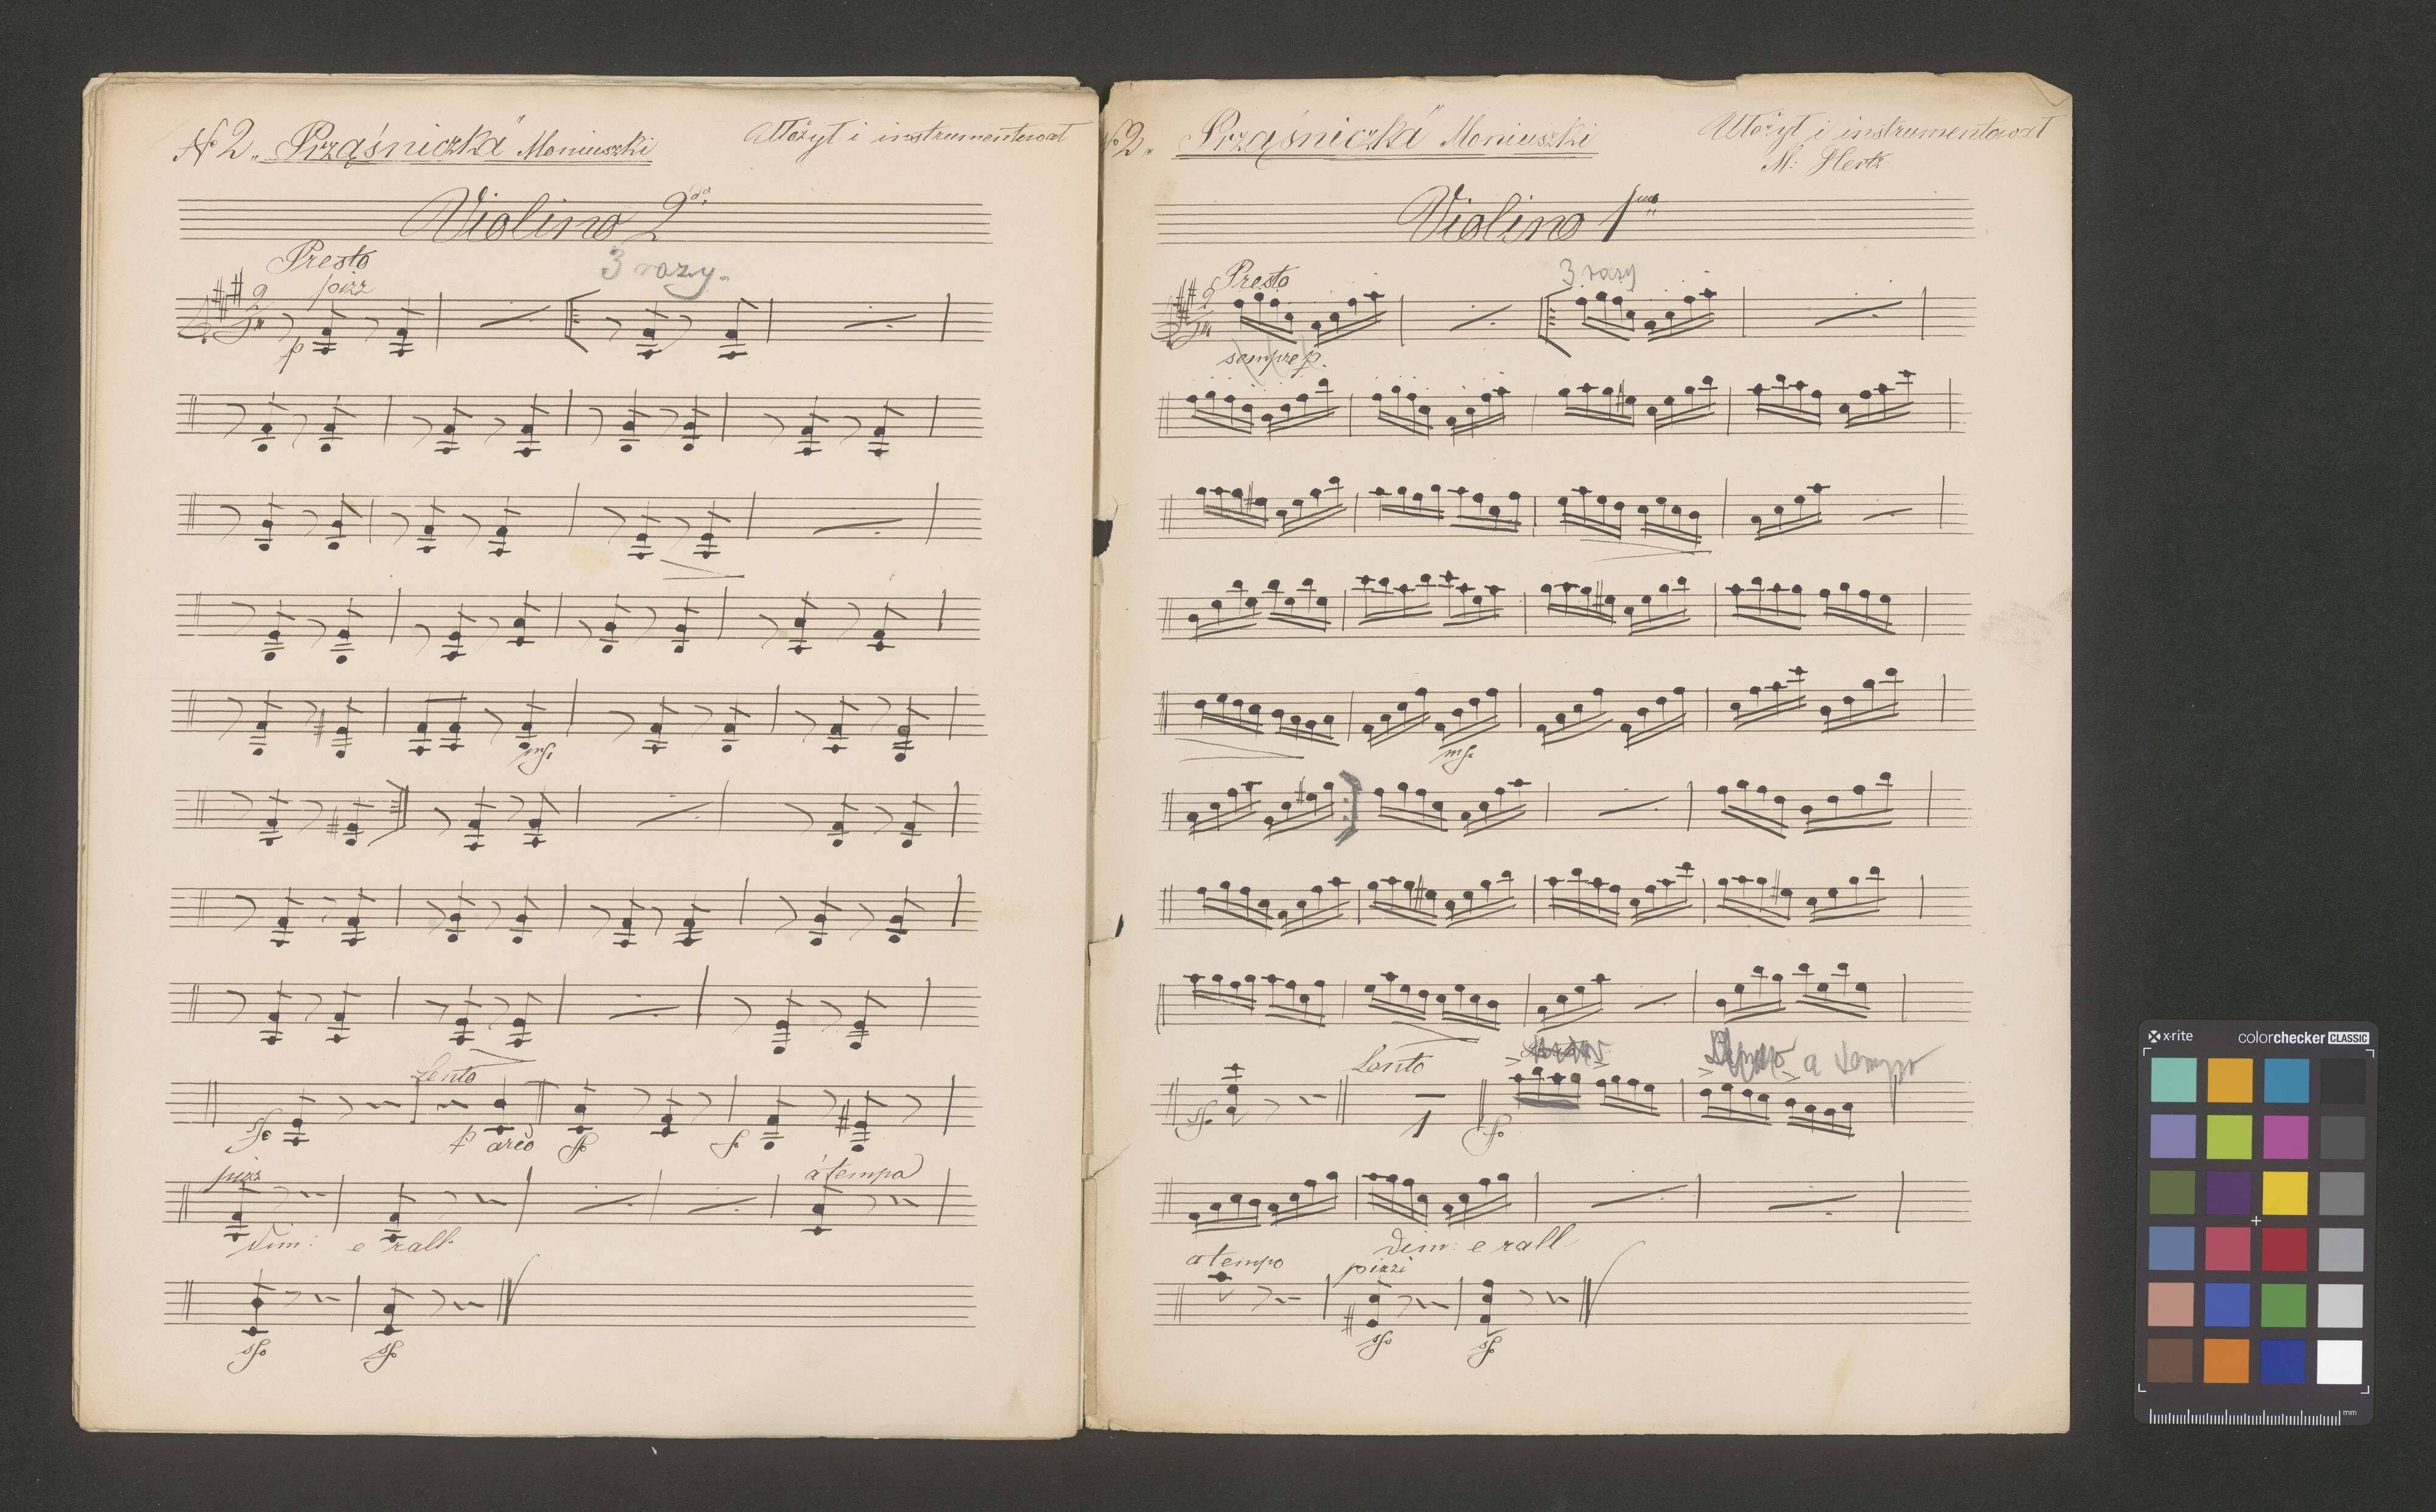 № 2. „Prząśniczka” Moniuszki
Ułożył i instrumentował
Violino 2do
Presto
pizz
3 razy.
p
mf.
Lento
sf.
p arco
sf
f.
pizz
à tempo
dim: e rall:
sf.
sf.
№ 2. „Prząśniczka” Moniuszki
Ułożył i instrumentował
M: Hertz
Violino 1mo
Presto
3 razy
sempre p.
mf.
Lento
a tempo
sf.
1
sf.
dim: e rall
a tempo
pizzi
sf.
sf.
x-rite
colorchecker CLASSIC
mm